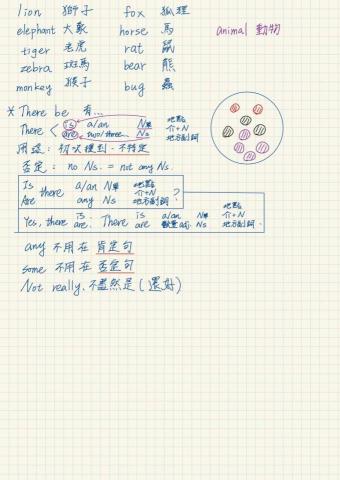 lion 獅子 fox 狐狸
elephant 大象 horse 馬 animal 動物
tiger 老虎 rat 鼠
zebra 斑馬 bear 熊
monkey 猴子 bug 蟲
* There be 有...
There is a/an N單 地點 介+N 地方副詞
are two/three... Ns
用途: 初次提到、不特定
否定: no Ns. = not any Ns.
Is there a/an N單 地點 介+N 地方副詞?
Are any Ns
Yes, there is. There is a/an N單 地點 介+N 地方副詞.
are. are 數量 Ns
any 不用在 肯定句
some 不用在 否定句
Not really. 不盡然是(還好)